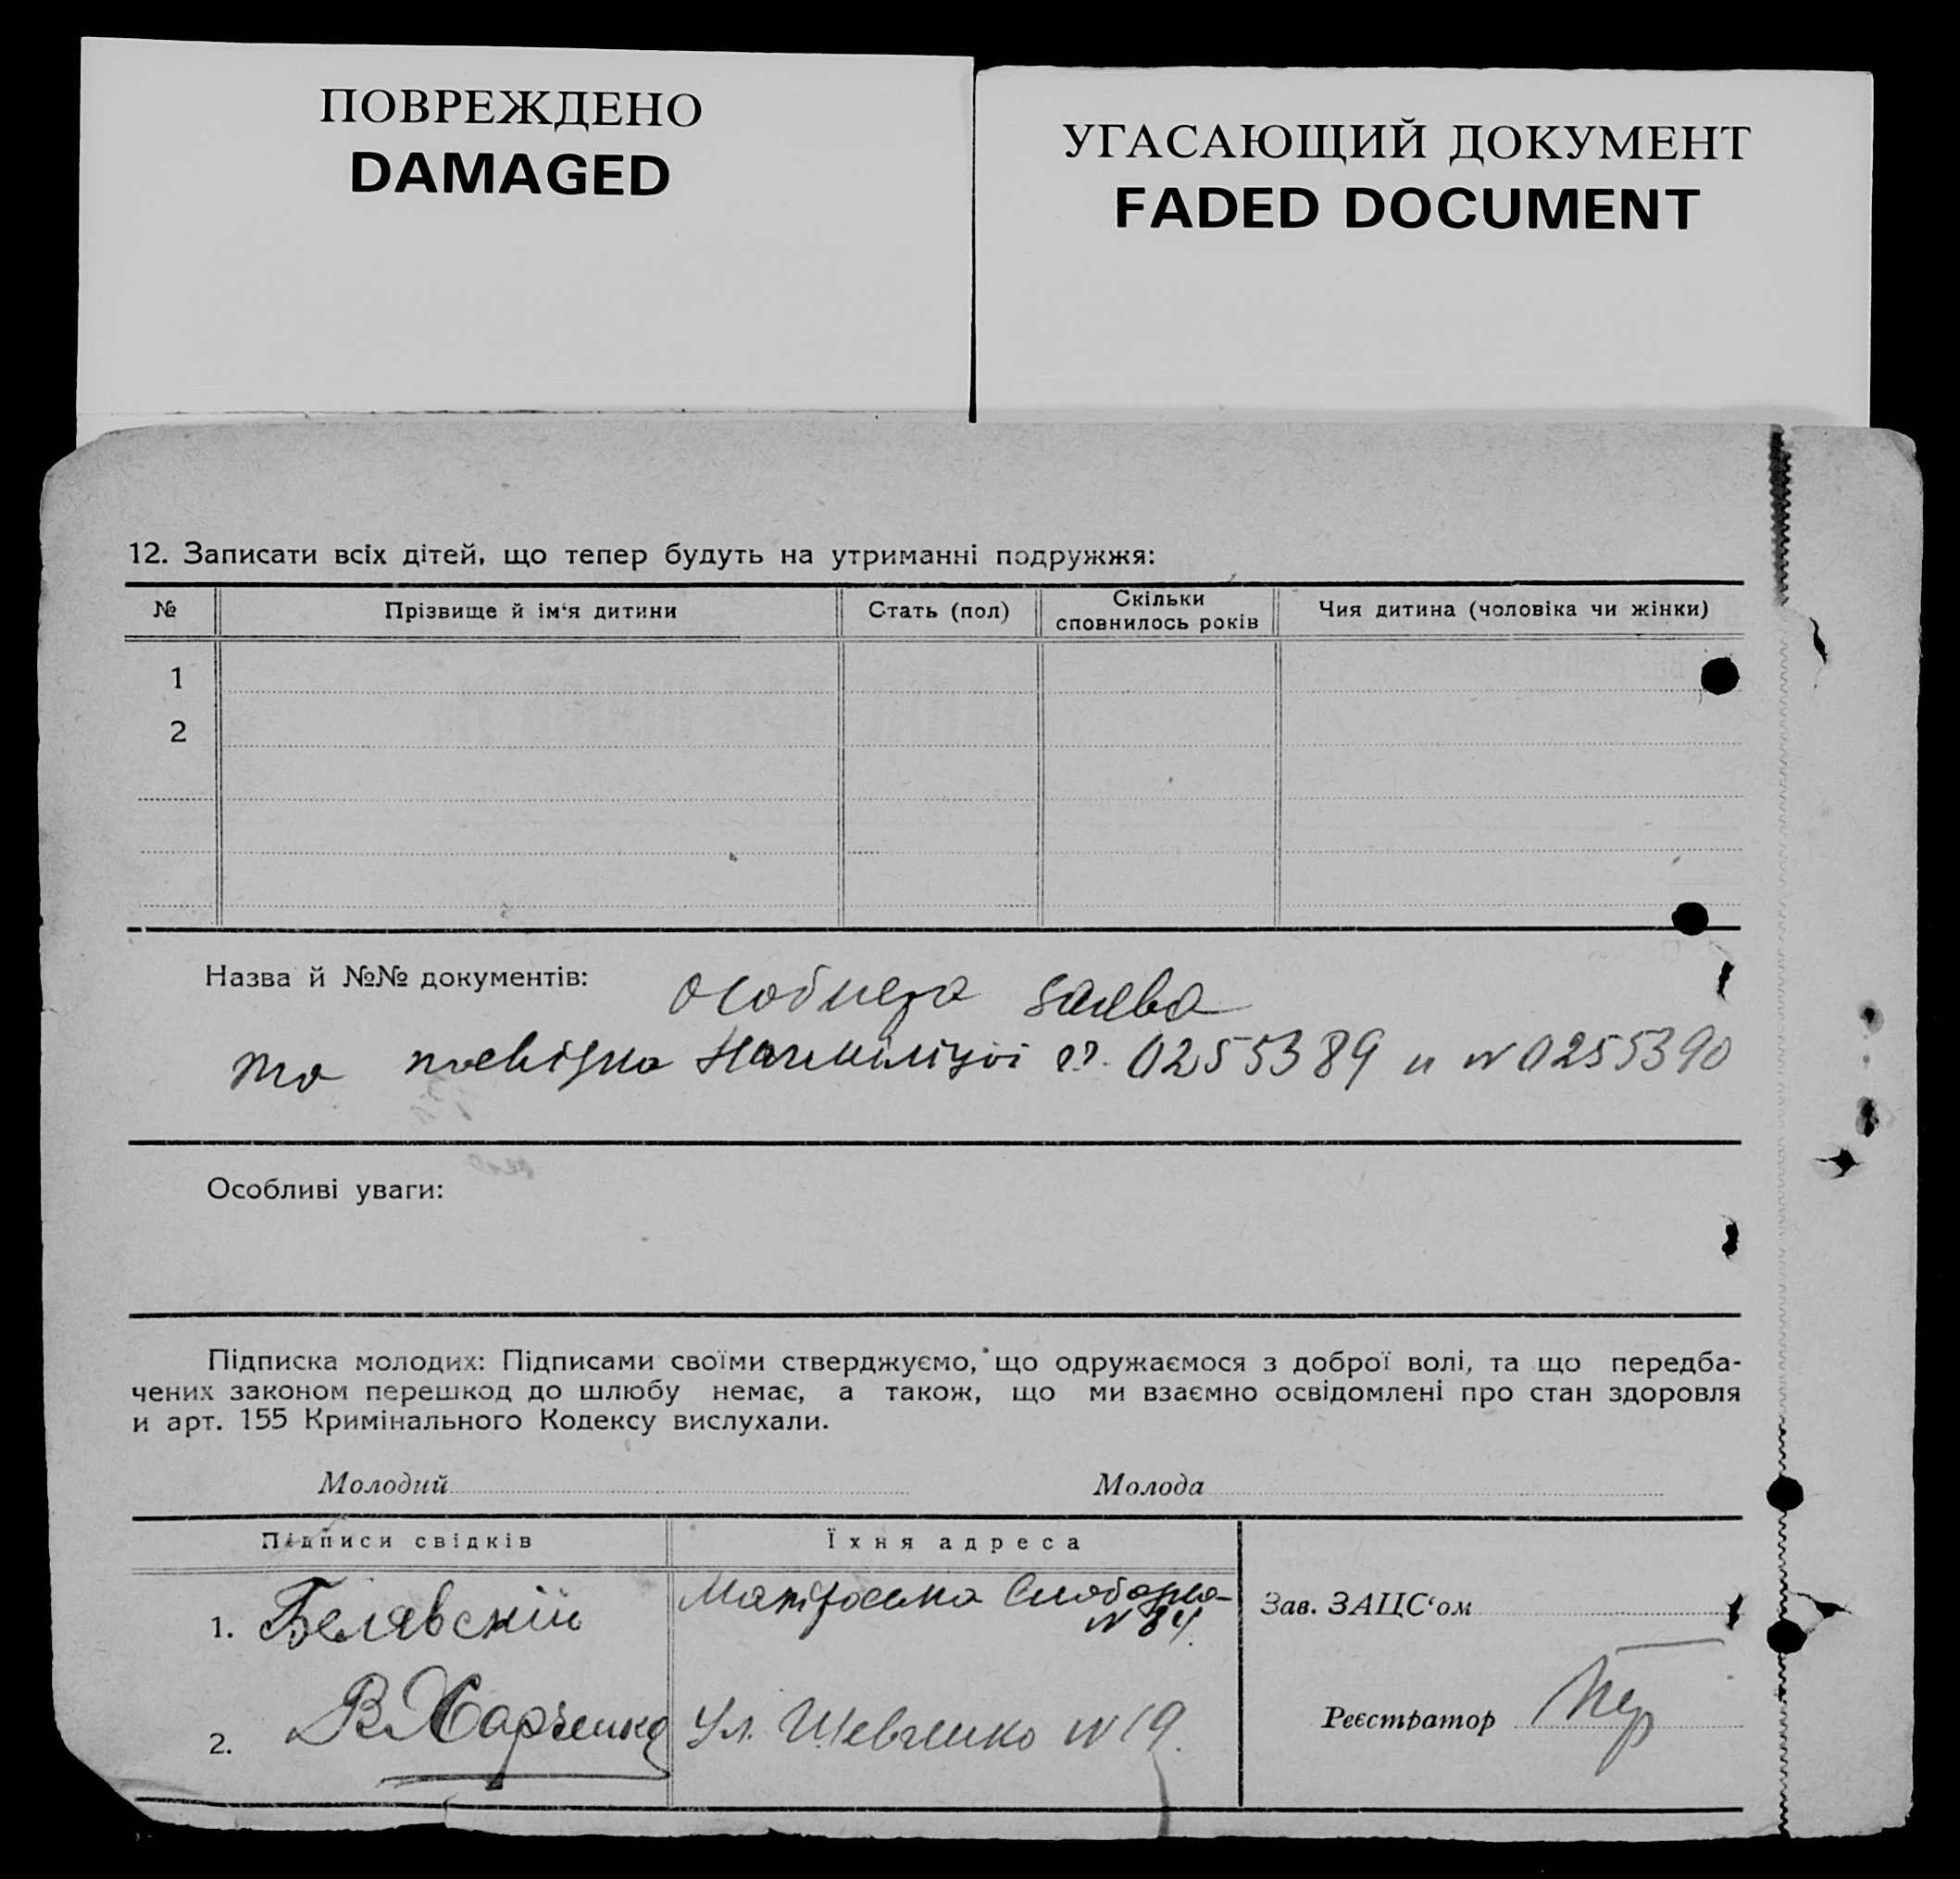 ПОВРЕЖДЕНО
DAMAGED
УГАСАЮЩИЙ ДОКУМЕНТ
FADED DOCUMENT
12. Записати всіх дітей, що тепер будуть на утриманні подружжя:
№ Прізвище й ім‘я дитини Стать (пол) Скільки сповнилось років Чия дитина (чоловіка чи жінки)
1
2
Назва й №№ документів: особиста заява
та посвідка 0255389 и N 0255390
Особливі уваги:
Підписка молодих: Підписами своїми стверджуємо, що одружаємося з доброї волі, та що передба-
чених законом перешкод до шлюбу немає, а також, що ми взаємно освідомлені про стан здоровля
и арт. 155 Кримінального Кодексу вислухали.
Молодий Молода
Підписи свідків Їхня адреса
1. Белявский Матроська Слободка
N 34.
Зав. ЗАЦС‘ом
2. В Харченко Ул. Шевченко N 19.
Реєстратор